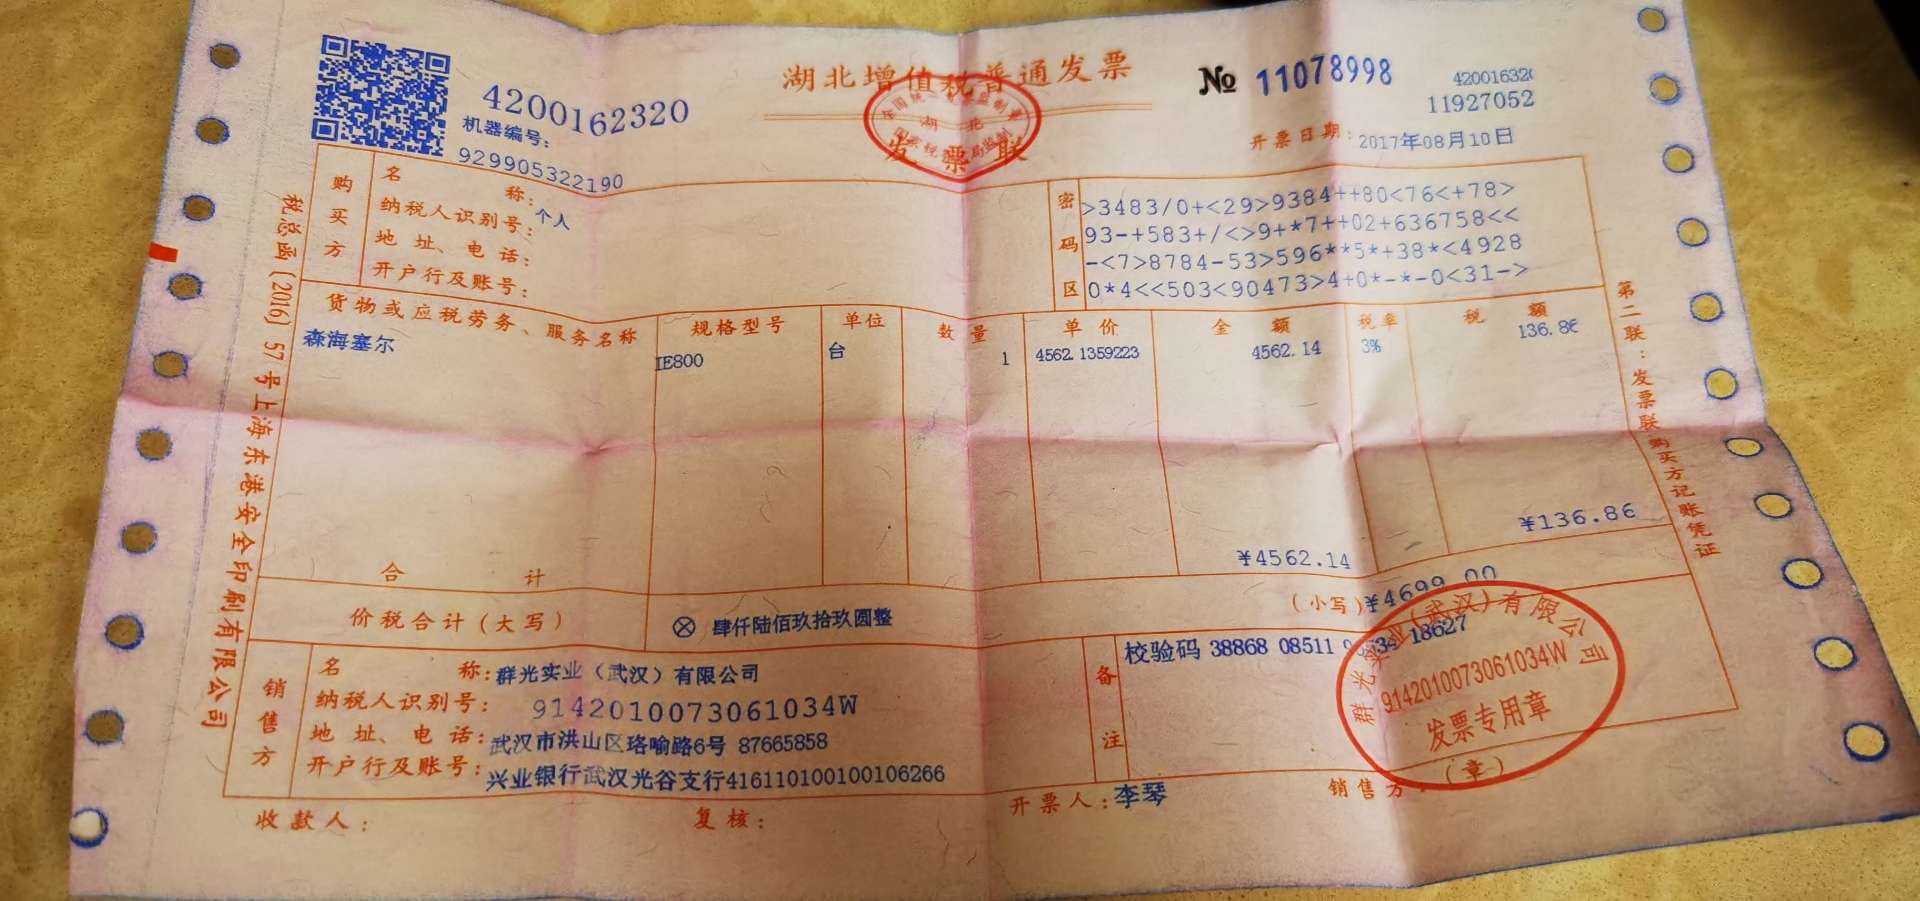 湖北增值税普通发票
发票联
4200162320
机器编号:
929905322190
№ 11078998
420016320
11927052
开票日期: 2017年08月10日
购买方
名 称: 个人
纳税人识别号:
地 址、电 话:
开户行及账号:
密码区
>3483/0+<29>9384++80<76<+78>
93-+583+/<>9+*7++02+636758<<
-<7>8784-53>596**5*+38*<4928
0*4<<503<90473>4+0*-*-0<31->
货物或应税劳务、服务名称 规格型号 单位 数量 单价 金额 税率 税额
森海塞尔 IE800 台 1 4562.1359223 4562.14 3% 136.86
合 计 ¥4562.14 ¥136.86
价税合计(大写) ⊗ 肆仟陆佰玖拾玖圆整 (小写)¥4699.00
销售方
名 称: 群光实业(武汉)有限公司
纳税人识别号: 9142010073061034W
地 址、电 话: 武汉市洪山区珞喻路6号 87665858
开户行及账号: 兴业银行武汉光谷支行416110100100106266
备注
校验码 38868 08511 18627
群光实业(武汉)有限公司
9142010073061034W
发票专用章
收款人:
复核:
开票人: 李琴
销售方:(章)
税总函〔2016〕57号上海东港安全印刷有限公司
第二联:发票联 购买方记账凭证